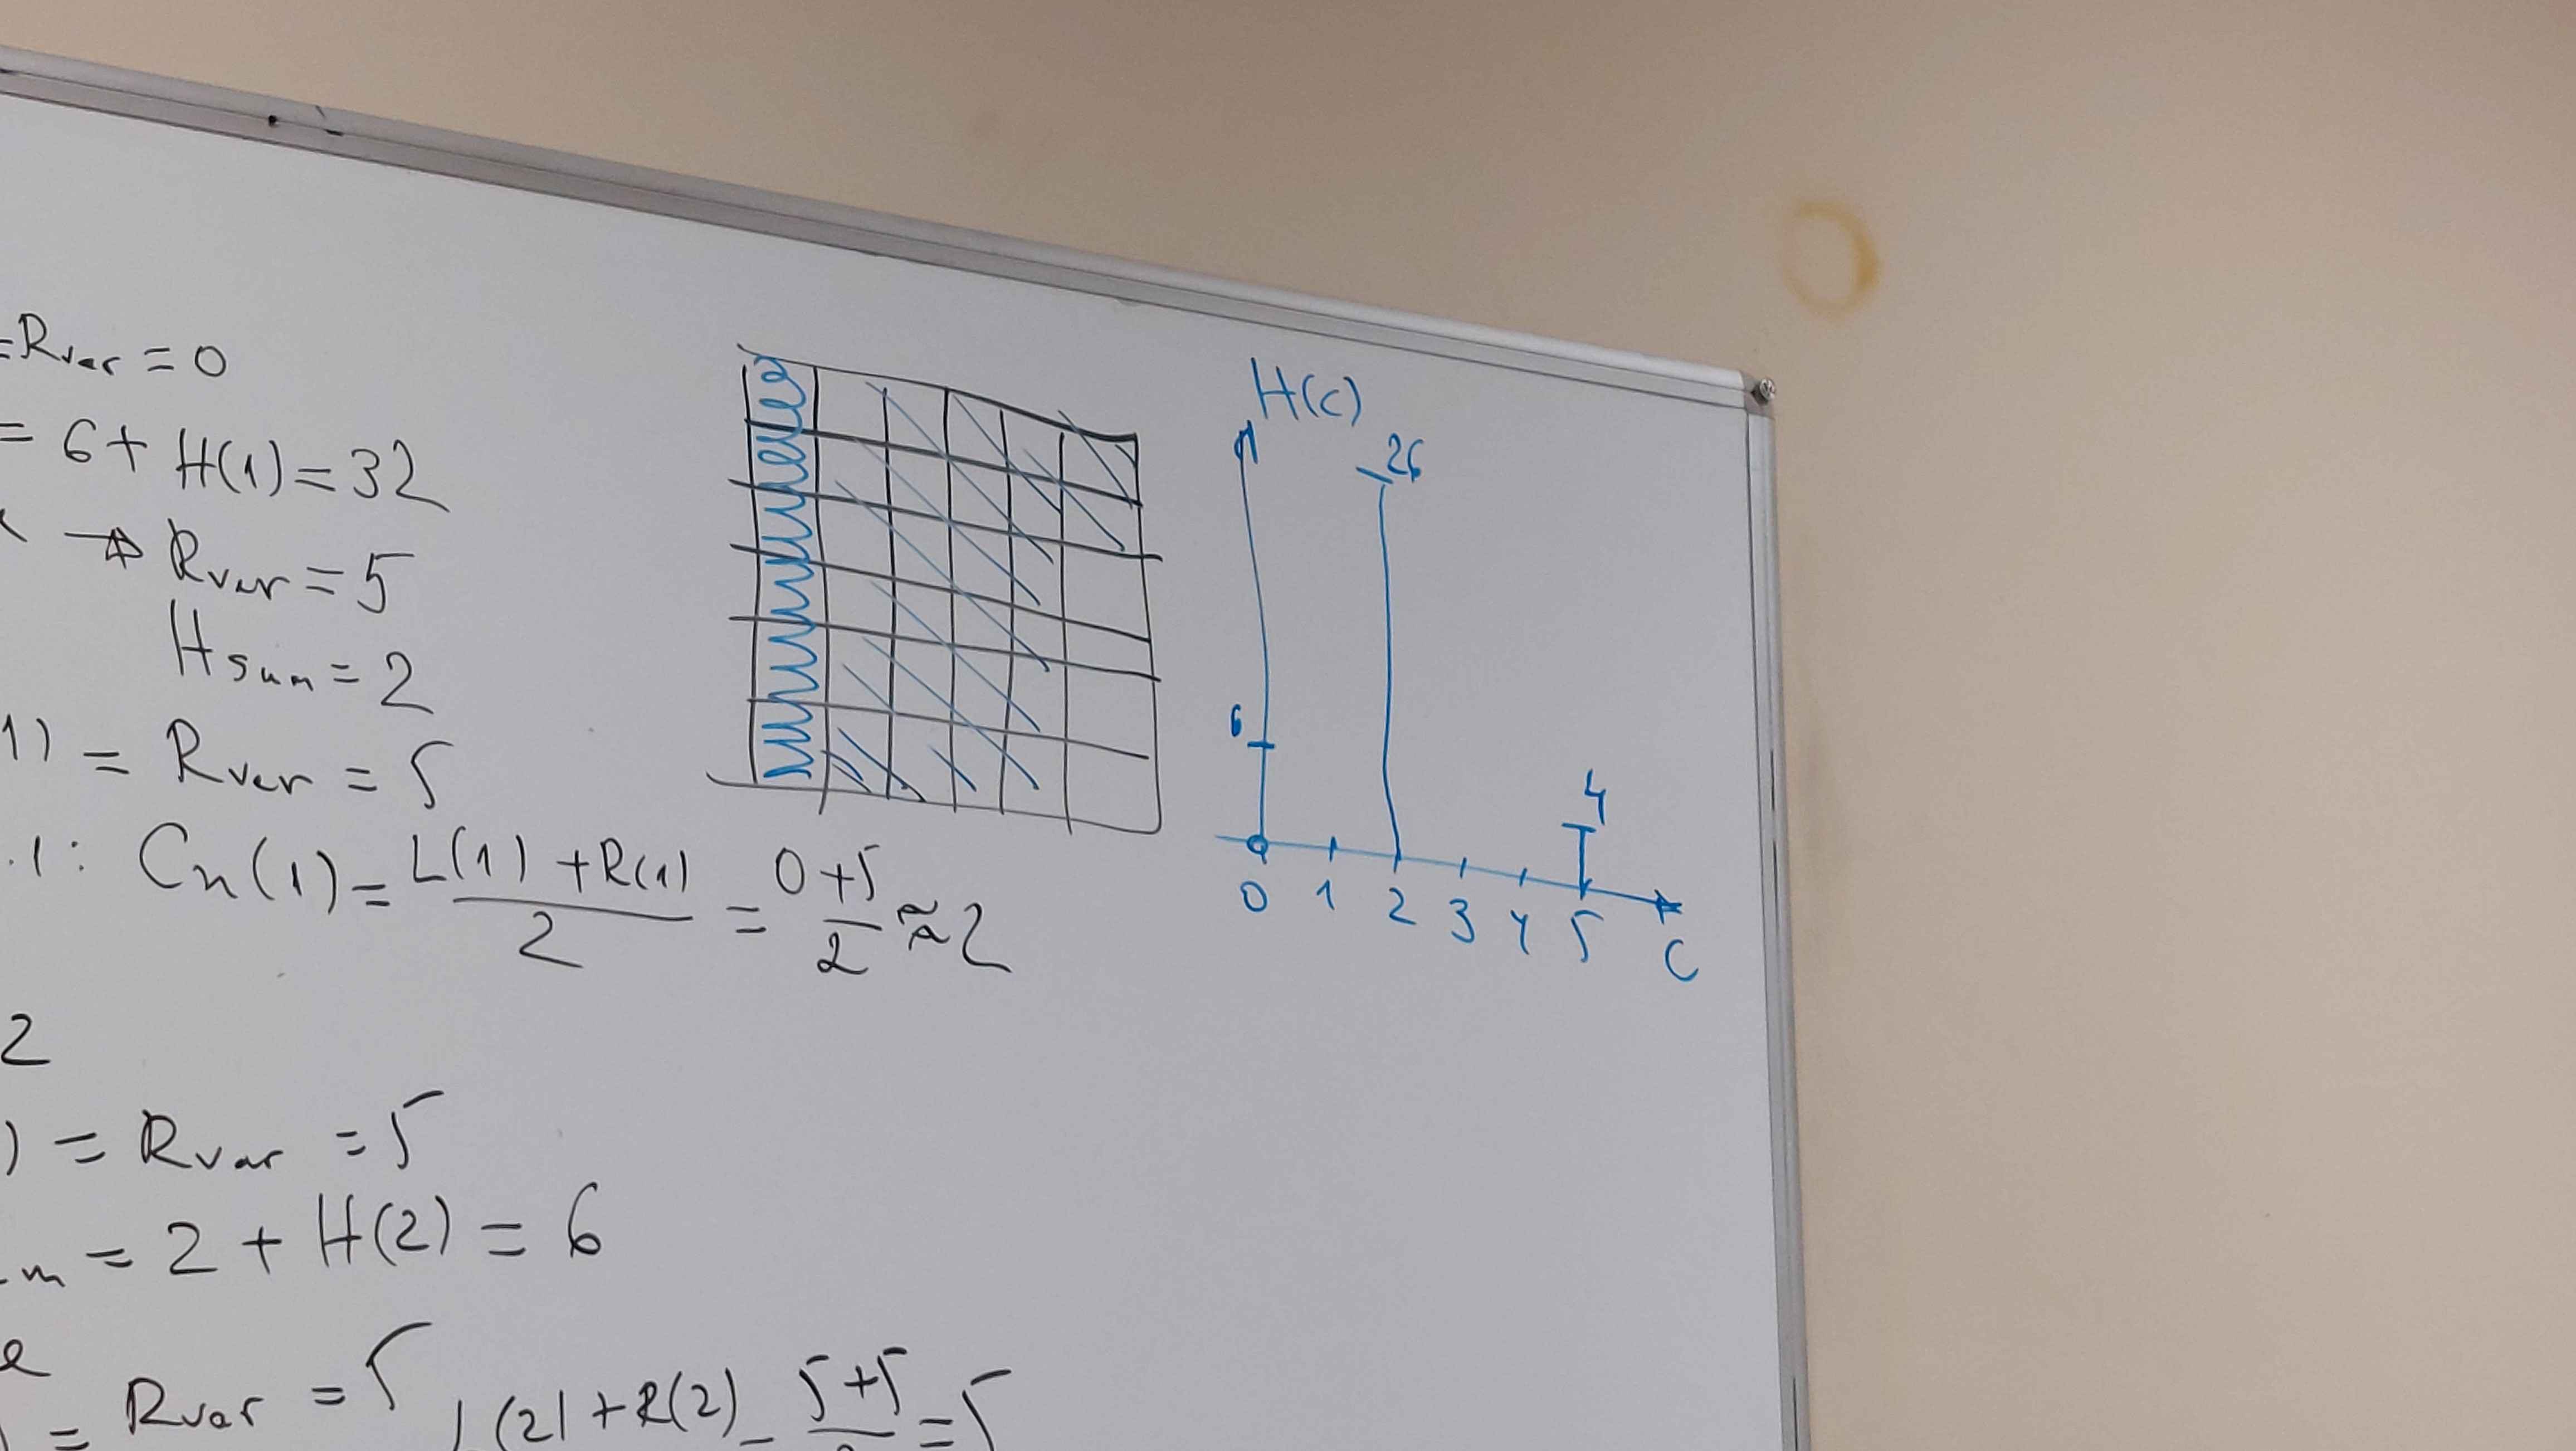 =Rvar = 0
= 6 + H(1) = 32
→ Rvar = 5
Hsum = 2
1) = Rvar = 5
.1: Cn(1) = L(1) + R(1) / 2 = 0+5 / 2 ≈ 2
2
) = Rvar = 5
m = 2 + H(2) = 6
e
) = Rvar = 5
(2) + R(2) = 5+5 = 5
H(c)
26
6
4
0 1 2 3 4 5
C